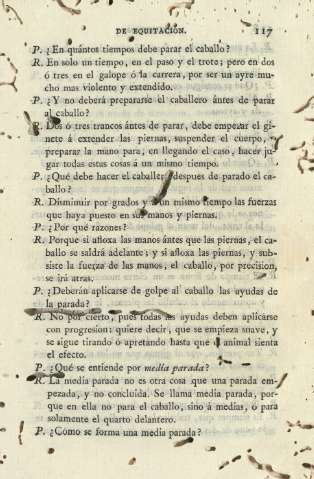 DE EQUITACIÓN. 117
P. ¿En quántos tiempos debe parar el caballo?
R. En solo un tiempo, en el paso y el trote; pero en dos
ó tres en el galope ó la carrera, por ser un ayre mu-
cho mas violento y extendido.
P. ¿Y no deberá prepararse el caballero ántes de parar
al caballo?
R. Dos ó tres trancos ántes de parar, debe empezar el gi-
nete á extender las piernas, suspender el cuerpo, y
preparar la mano para, en llegando el caso, hacer ju-
gar todas estas cosas á un mismo tiempo.
P. ¿Qué debe hacer el caballero despues de parado el ca-
ballo?
R. Disminuir por grados y á un mismo tiempo las fuerzas
que haya puesto en sus manos y piernas.
P. ¿Por qué razones?
R. Porque si afloxa las manos ántes que las piernas, el ca-
ballo se saldrá adelante; y si afloxa las piernas, y sub-
siste la fuerza de las manos, el caballo, por precision,
se irá atras.
P. ¿Deberán aplicarse de golpe al caballo las ayudas de
la parada?
R. No por cierto, pues todas las ayudas deben aplicarse
con progresion: quiere decir, que se empieza suave, y
se sigue tirando ó apretando hasta que el animal sienta
el efecto.
P. ¿Qué se entiende por media parada?
R. La media parada no es otra cosa que una parada em-
pezada, y no concluida. Se llama media parada, por-
que en ella no para el caballo, sino á medias, ó para
solamente el quarto delantero.
P. ¿Como se forma una media parada?